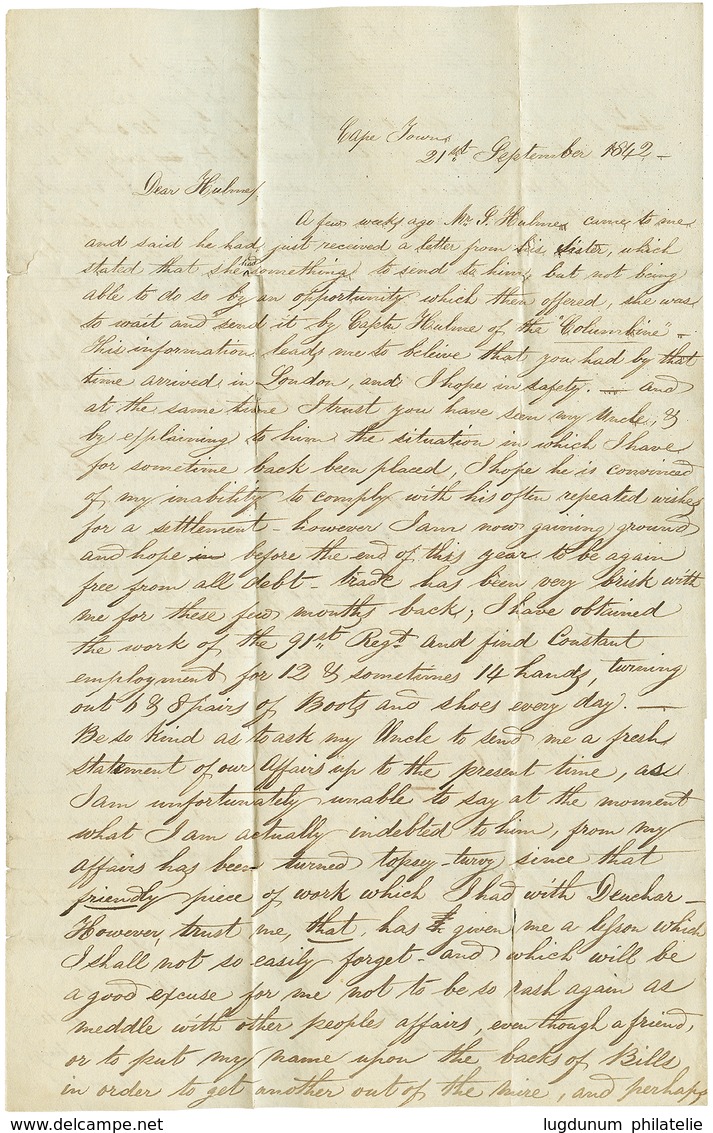 Cape Town
21st September 1842 —
Dear Hulme,
A few weeks ago Mr. S. Hulme came to me
and said he had just received a letter from his sister, which
stated that she had something to send to him, but not being
able to do so by an opportunity which then offered, she was
to wait and send it by Captn Hulme of the "Columbine" –
This information leads me to beleive that you had by that
time arrived in London, and I hope in safety. — and
at the same time I trust you have seen my Uncle, &
by explaining to him the situation in which I have
for sometime back been placed, I hope he is convinced
of my inability to comply with his often repeated wishes
for a settlement – however I am now gaining ground
and hope in before the end of this year to be again
free from all debt – trade has been very brisk with
me for these few months back; I have obtained
the work of the 91st Regt and find Constant
employment for 12 & sometimes 14 hands, turning
out 6 & 8 pairs of Boots and shoes every day. —
Be so kind as to ask my Uncle to send me a fresh
statement of our affairs up to the present time, as
I am unfortunately unable to say at the moment
what I am actually indebted to him, from my
affairs has been turned topsey-turvy since that
friendly piece of work which I had with Deuchar –
However, trust me, that, has given me a lesson which
I shall not so easily forget – and which will be
a good excuse for me not to be so rash again as
meddle with other peoples affairs, even though a friend,
or to put my name upon the backs of Bills
in order to get another out of the mire, and perhaps
delcampe.net
lugdunum philatelie